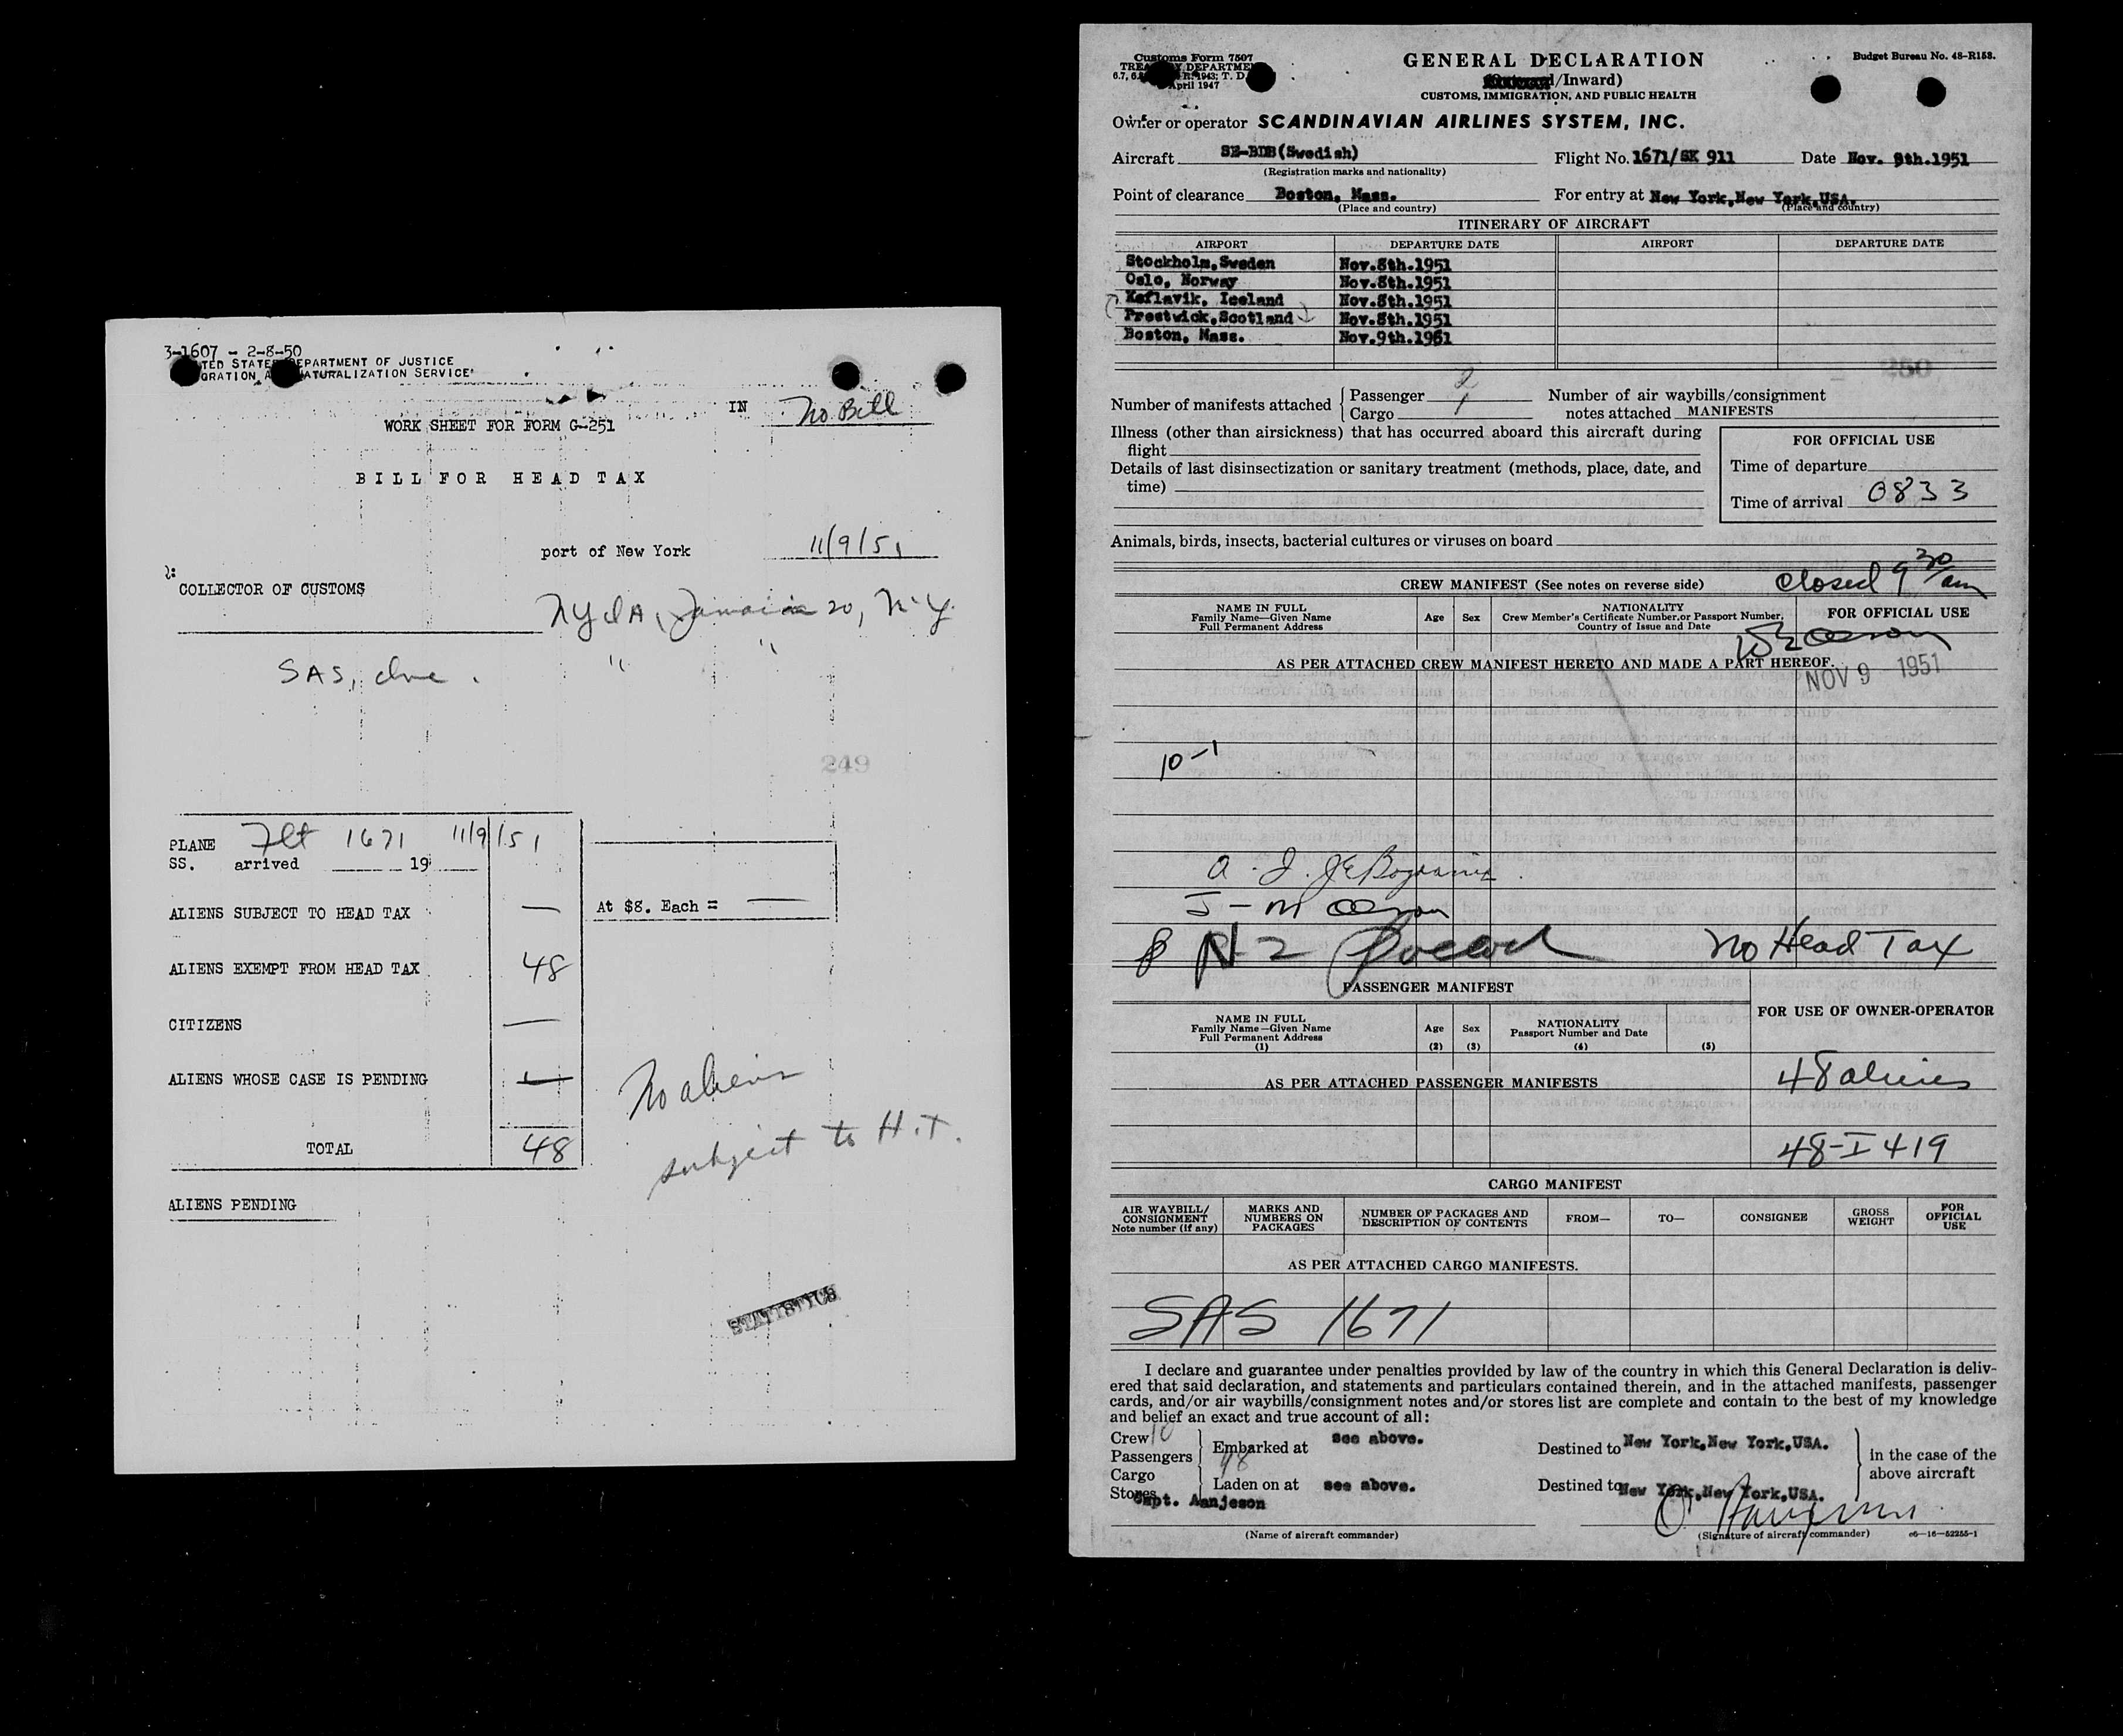 3-1607 - 2-8-50
TED STATE EPARTMENT OF JUSTICE
GRATION A ATURALIZATION SERVICE
IN No Bill
WORK SHEET FOR FORM G-251
BILL FOR HEAD TAX
port of New York 11/9/51
COLLECTOR OF CUSTOMS
NYIA, Jamaica 20, N.Y.
SAS, Inc. " "
249
PLANE Flt 1671 11/9/51
SS. arrived 19
ALIENS SUBJECT TO HEAD TAX — At $8. Each = —
ALIENS EXEMPT FROM HEAD TAX 48
CITIZENS —
ALIENS WHOSE CASE IS PENDING —
No aliens
subject to H.T.
TOTAL 48
ALIENS PENDING
STATISTICS
Customs Form 7507
TRE Y DEPARTME
1943; T. D.
April 1947
GENERAL DECLARATION
/Inward)
CUSTOMS, IMMIGRATION, AND PUBLIC HEALTH
Budget Bureau No. 48-R158.
Owner or operator SCANDINAVIAN AIRLINES SYSTEM, INC.
Aircraft SE-BDB(Swedish) Flight No. 1671/SK 911 Date Nov. 9th.1951
(Registration marks and nationality)
Point of clearance Boston, Mass. For entry at New York,New York,USA.
(Place and country) (Place and country)
ITINERARY OF AIRCRAFT
AIRPORT DEPARTURE DATE AIRPORT DEPARTURE DATE
Stockholm,Sweden Nov.8th.1951
Oslo, Norway Nov.8th.1951
Keflavik, Iceland Nov.8th.1951
Prestwick,Scotland Nov.8th.1951
Boston, Mass. Nov.9th.1951
Number of manifests attached Passenger 2 Number of air waybills/consignment
Cargo 1 notes attached MANIFESTS
Illness (other than airsickness) that has occurred aboard this aircraft during
flight
Details of last disinsectization or sanitary treatment (methods, place, date, and
time)
FOR OFFICIAL USE
Time of departure
Time of arrival 0833
Animals, birds, insects, bacterial cultures or viruses on board
closed 9 30/am
CREW MANIFEST (See notes on reverse side)
NAME IN FULL
Family Name—Given Name
Full Permanent Address
Age Sex
NATIONALITY
Crew Member's Certificate Number,or Passport Number,
Country of Issue and Date
FOR OFFICIAL USE
AS PER ATTACHED CREW MANIFEST HERETO AND MADE A PART HEREOF.
NOV 9 1951
10-1
No Head Tax
PASSENGER MANIFEST
NAME IN FULL
Family Name—Given Name
Full Permanent Address
(1)
Age
(2)
Sex
(3)
NATIONALITY
Passport Number and Date
(4) (5)
FOR USE OF OWNER-OPERATOR
AS PER ATTACHED PASSENGER MANIFESTS
48 aliens
48-I 419
CARGO MANIFEST
AIR WAYBILL/
CONSIGNMENT
Note number (if any)
MARKS AND
NUMBERS ON
PACKAGES
NUMBER OF PACKAGES AND
DESCRIPTION OF CONTENTS
FROM— TO— CONSIGNEE
GROSS
WEIGHT
FOR
OFFICIAL
USE
AS PER ATTACHED CARGO MANIFESTS.
SAS 1671
I declare and guarantee under penalties provided by law of the country in which this General Declaration is deliv-
ered that said declaration, and statements and particulars contained therein, and in the attached manifests, passenger
cards, and/or air waybills/consignment notes and/or stores list are complete and contain to the best of my knowledge
and belief an exact and true account of all:
Crew 10
Passengers 48
Cargo
Stores
Embarked at see above. Destined to New York,New York,USA.
Laden on at see above. Destined to New York,New York,USA.
in the case of the
above aircraft
Capt. Aanjeson
(Name of aircraft commander) (Signature of aircraft commander) c6—16—52255-1